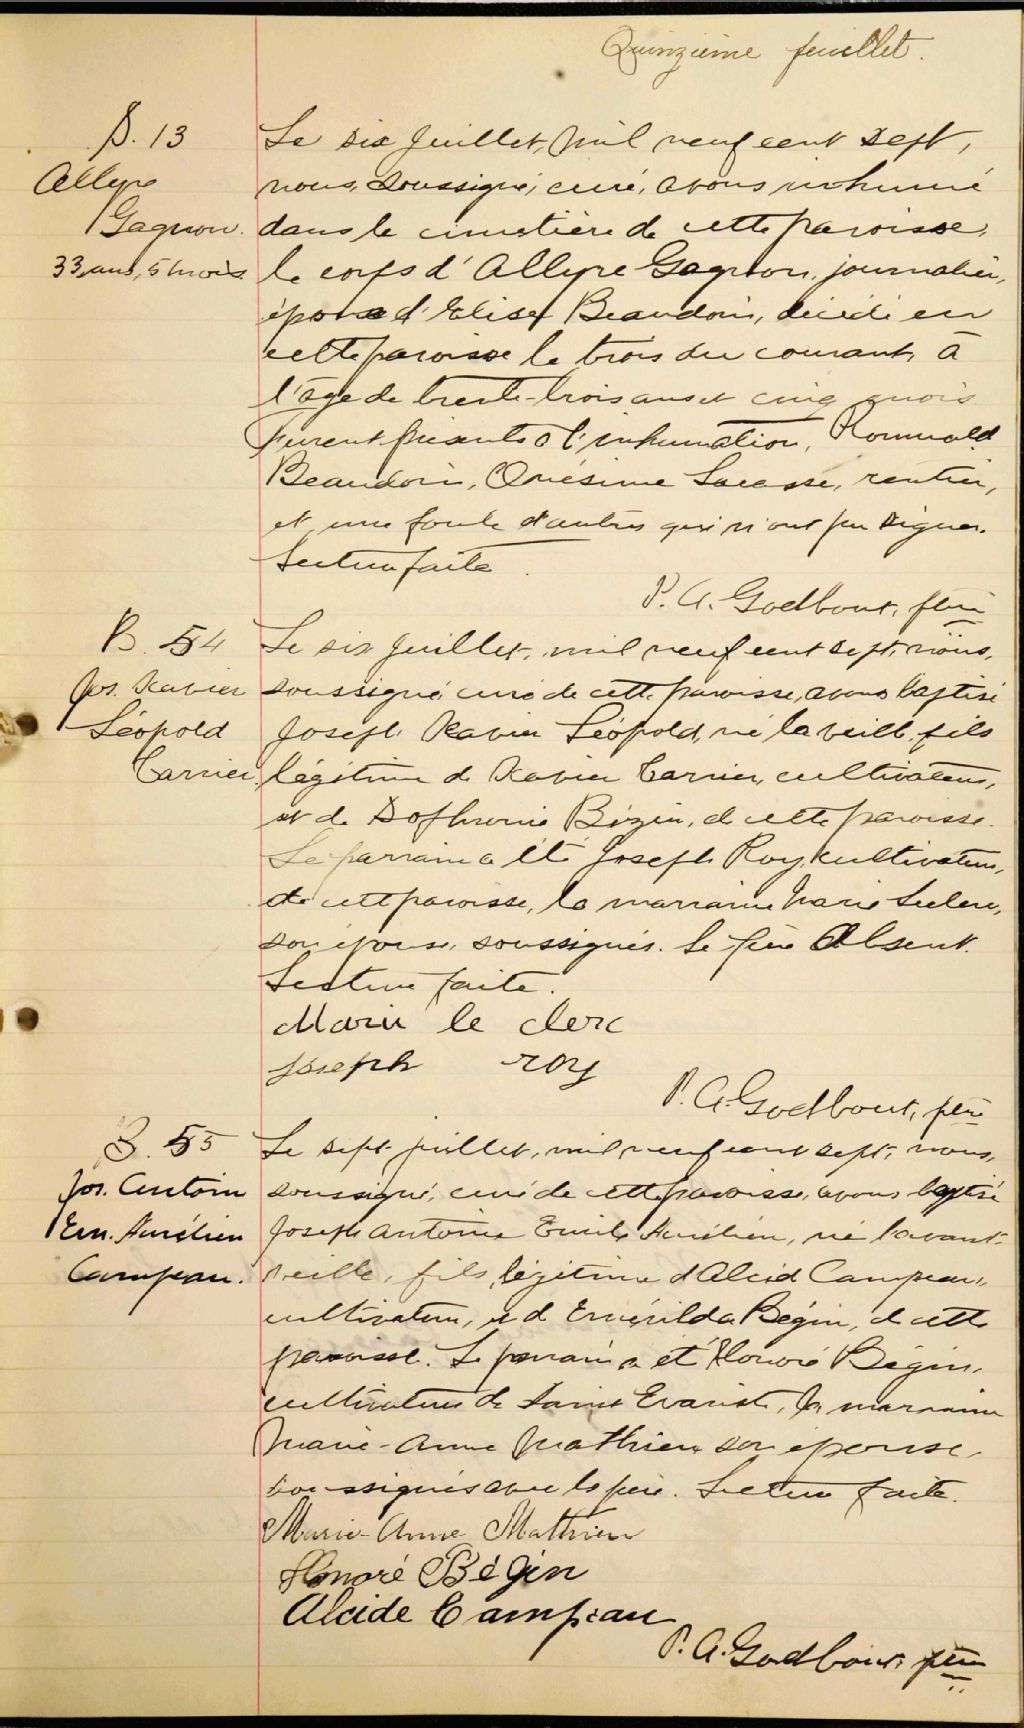 Quinzième feuillet.
S. 13
Allyre
Gagnon.
33 ans, 5 mois
Le six juillet, mil neuf cent sept,
nous, soussigné, curé, avons inhumé
dans le cimetière de cette paroisse,
le corps d'Allyre Gagnon, journalier,
époux d'Elise Beaudoin, décédé en
cette paroisse le trois du courant, à
l'âge de trente-trois ans et cinq mois.
Furent présents à l'inhumation, Romuald
Beaudoin, Onésime Lacasse, rentier,
et une foule d'autres qui n'ont pu signer.
Lecture faite.
P. A. Godbout, ptre
B. 54
Jos. Xavier
Léopold
Carrier
Le six juillet, mil neuf cent sept, nous,
soussigné curé de cette paroisse, avons baptisé
Joseph Xavier Léopold, né la veille, fils
légitime de Xavier Carrier, cultivateur,
et de Sophronie Bizier, de cette paroisse.
Le parrain a été Joseph Roy, cultivateur,
de cette paroisse, la marraine Marie Leclerc,
son épouse, soussignés. Le père absent.
Lecture faite.
Marie le clerc
joseph roy
P. A. Godbout, ptre
B. 55
Jos. Antoine
Em. Aurélien
Campeau.
Le sept juillet, mil neuf cent sept, nous,
soussigné, curé de cette paroisse, avons baptisé
Joseph Antoine Emile Aurélien, né l'avant-
veille, fils légitime d'Alcid Campeau,
cultivateur, et d'Emérilda Bégin, de cette
paroisse. Le parrain a été Honoré Bégin,
cultivateur de Saint Evariste, la marraine
Marie-Anne Mathieu son épouse,
soussignés avec le père. Lecture faite.
Marie-Anne Mathieu
Honoré Bégin
Alcide Campeau
P. A. Godbout, ptre